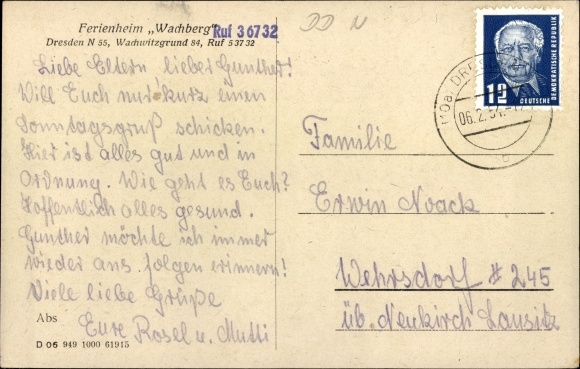 DD N
Ferienheim „Wachberg" Ruf 36732
Dresden N 55, Wachwitzgrund 84, Ruf 53732
Liebe Eltern lieber Gunther!
Will Euch nur kurz einen
Sonntagsgruß schicken.
Hier ist alles gut und in
Ordnung. Wie geht es Euch?
Hoffentlich alles gesund.
Gunther möchte ich immer
wieder ans folgen erinnern!
Viele liebe Grüße
Eure Rosel u. Mutti
Abs
D 06 949 1000 61915
12
DEUTSCHE
DEMOKRATISCHE REPUBLIK
(10a) DRES
06.2.54.-17
b
Familie
Erwin Noack
Wehrsdorf # 245
üb. Neukirch Lausitz